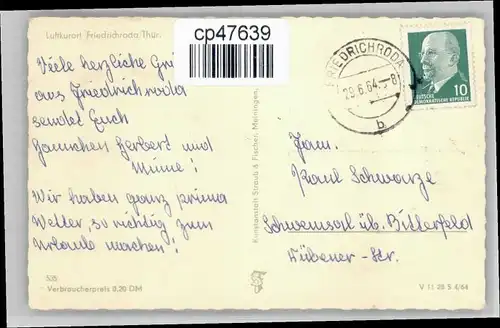 Luftkurort Friedrichroda/Thür.
cp47639
Viele herzliche Grü
aus Friedrichroda
sendet Euch
Herbert und
Minne!
Wir haben ganz prima
Wetter, so richtig zum
Urlaub machen!
535
Verbraucherpreis 0,20 DM
Kunstanstalt Straub & Fischer, Meiningen
FRIEDRICHRODA
29.6.64.-8
b
10
DEUTSCHE
DEMOKRATISCHE REPUBLIK
Fam.
Karl Schwarze
Schwemsal üb. Bitterfeld
Dübener-Str.
V 11 28 S 4/64